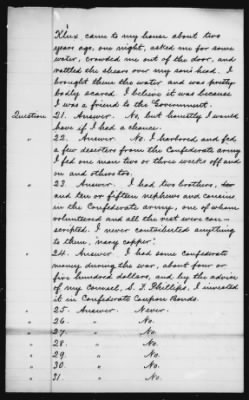 Klux came to my house about two
years ago, one night, asked me for some
water, crowded me out of the door, and
rattled the shears over my son's head. I
brought them the water and was pretty
badly scared. I believe it was because
I was a friend to the Government.
Question 21. Answer. No, but honestly I would
have if I had a chance.
" 22. Answer. No. I harbored and fed
a few deserters from the Confederate army
I fed one man two or three weeks off and
on and others too.
" 23. Answer. I had two brothers,
and ten or fifteen nephews and cousins
in the Confederate Army, one of whom
volunteered and all the rest were con-
scripted. I never contributed anything
to them, "nary copper."
" 24. Answer. I had some Confederate
money during the war, about four or
five hundred dollars, and by the advice
of my counsel, S. F. Phillips, I invested
it in Confederate Coupon Bonds.
" 25. Answer. Never.
" 26. " No.
" 27. " No.
" 28. " No.
" 29. " No.
" 30. " No.
" 31. " No.